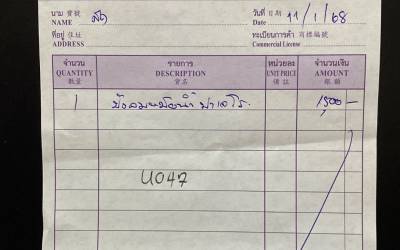 นาม 寶號 สด วันที่ 日期 11/1/68
NAME Date
ที่อยู่ 住址 ทะเบียนการค้า 商標編號
ADDRESS Commercial License
จำนวน รายการ หน่วยละ จำนวนเงิน
QUANTITY DESCRIPTION UNIT PRICE AMOUNT
數量 貨名 備註 銀額
1 ปาเจโร 1500 —
U047